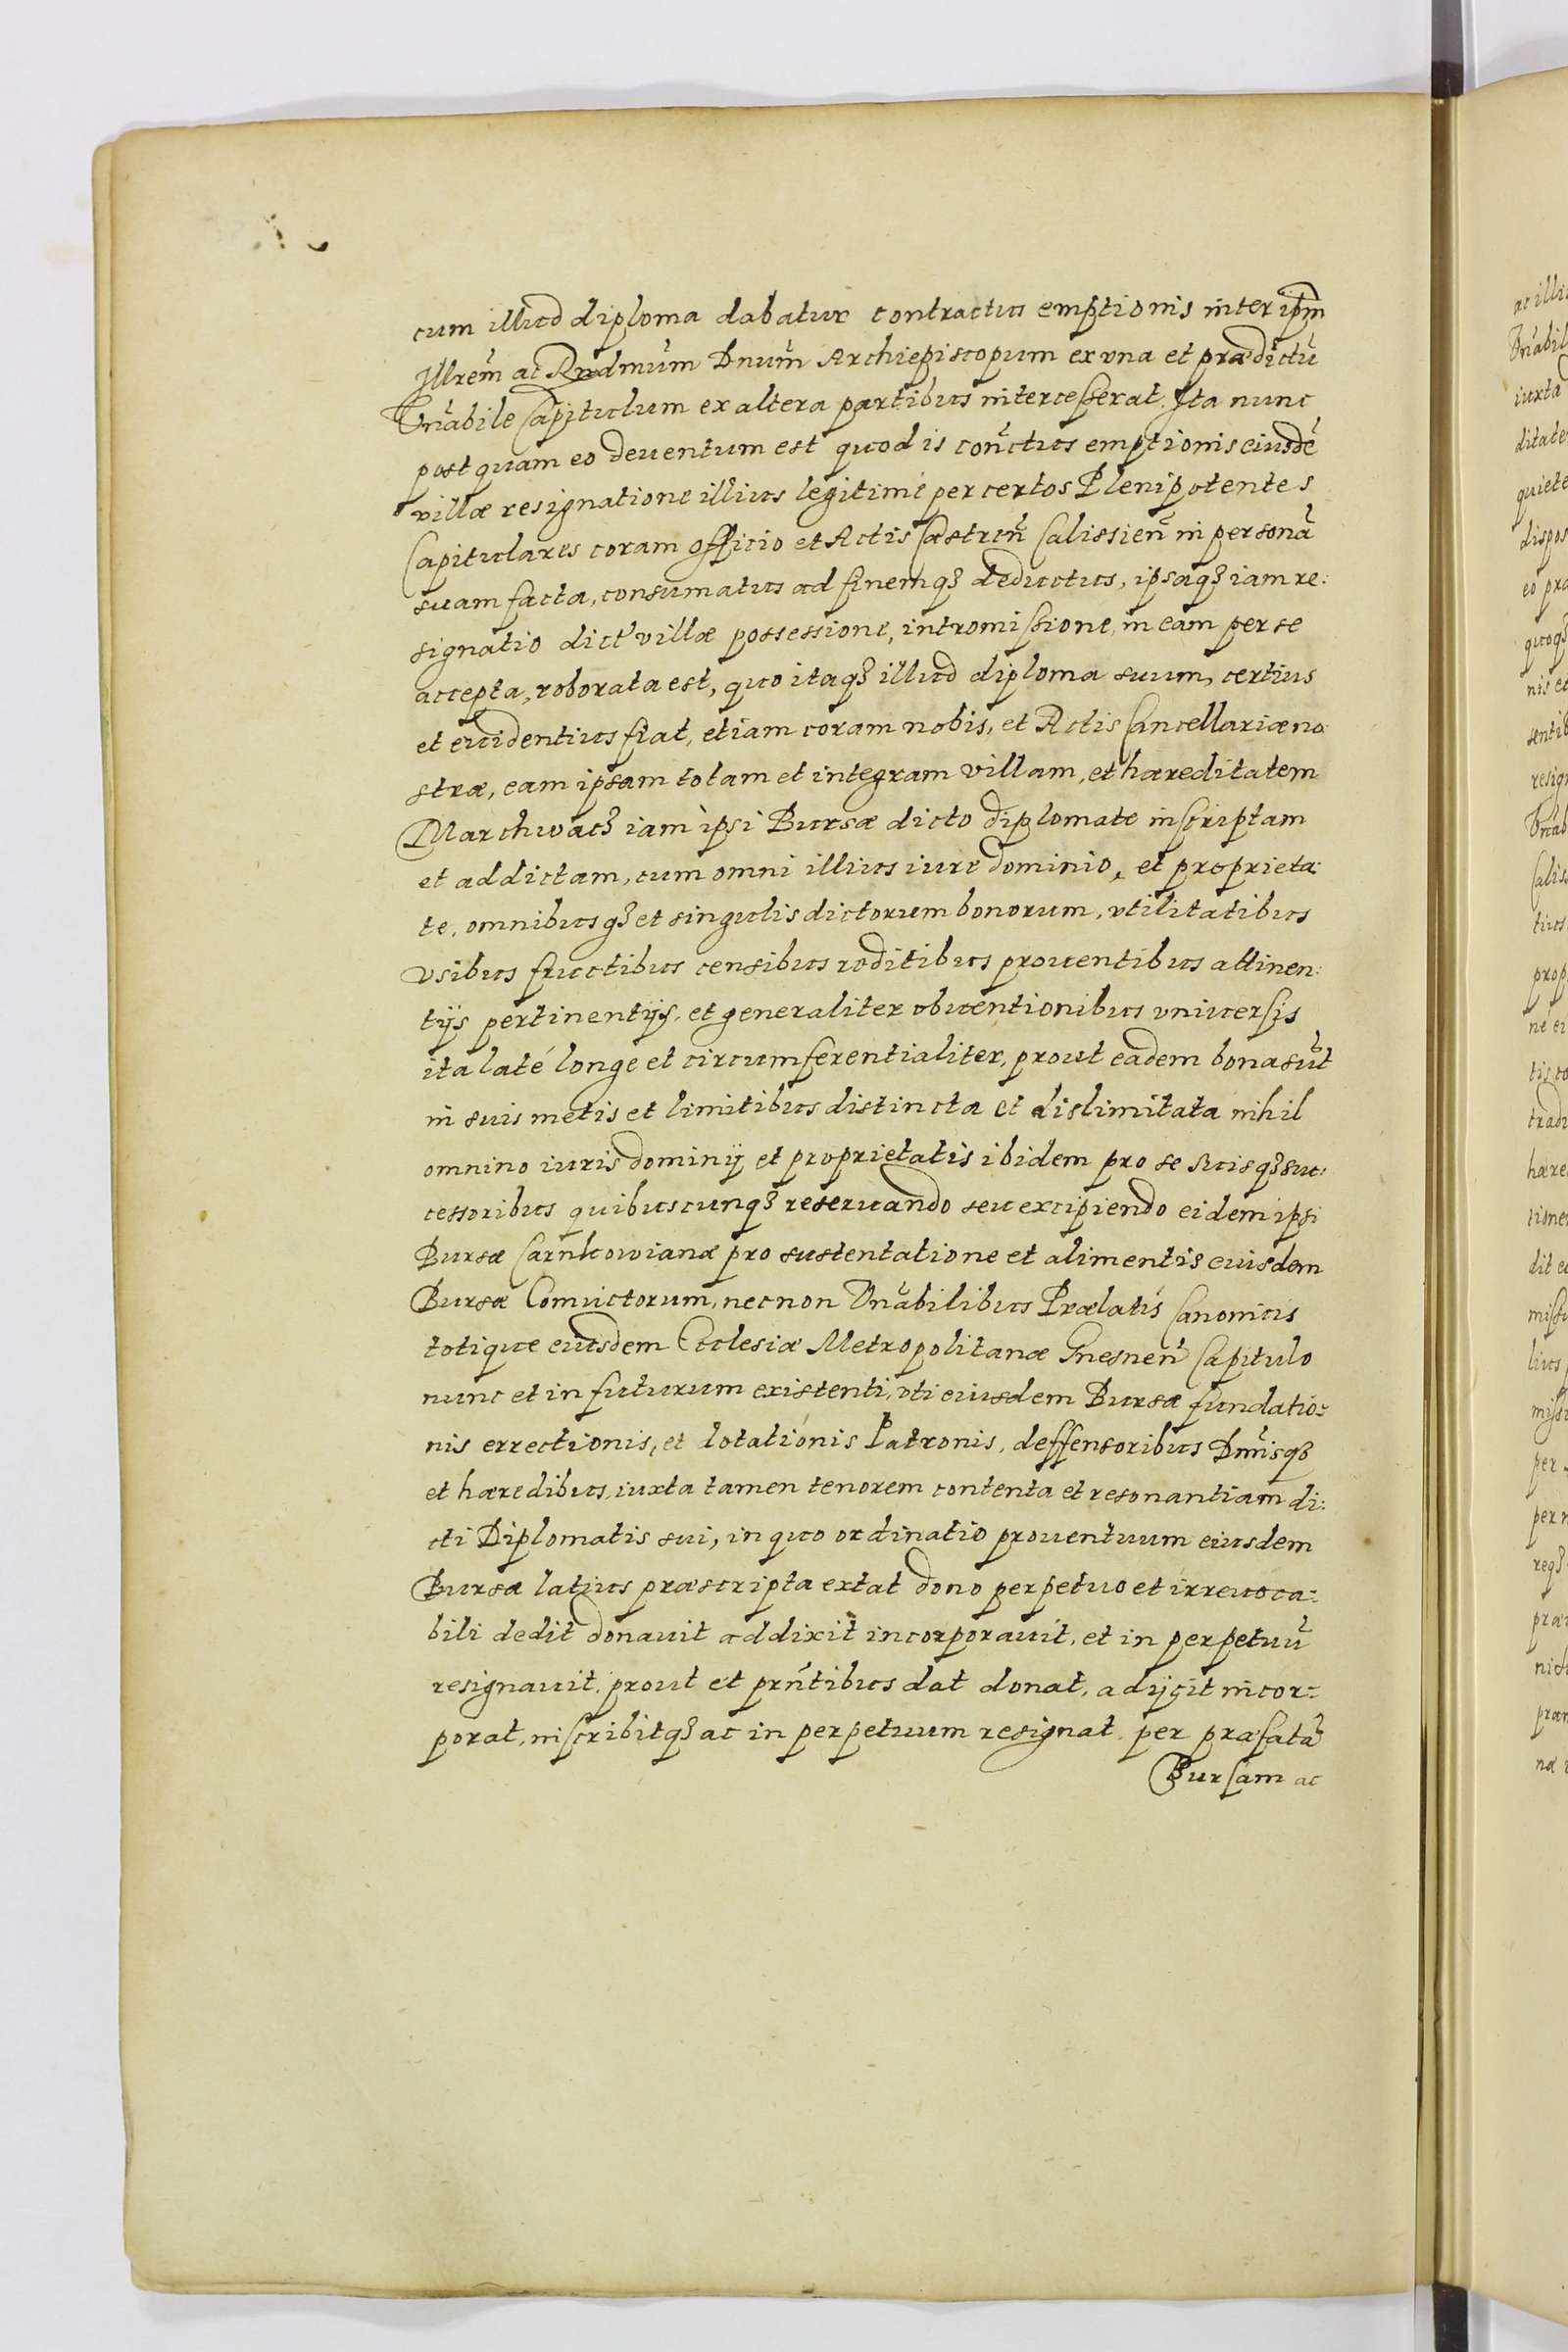 cum illud diploma dabatur contractus emptionis inter ipm̃
Jllrem̃ ac Rndmum̃ Dnum̃ Archiepiscopum ex vna et prædictũ
Vnãbile Capitulum ex altera partibus intercesserat. Jta nunc
post quam eo deuentum est quod is conctũs emptionis eiusdẽ
villæ resignatione illius legitimè per certos Plenipotentes
Capitulares coram officio et Actis Castren̄ Calissien̄ in personã
suam facta, consumatus ad finemqꝫ deductus, ipsaqꝫ iam re:
signatio dict' villæ possessione, intromissione, in eam per se
accepta, roborata est, quo itaqꝫ illud diploma suum, certius
et euidentius fiat, etiam coram nobis, et Actis Cancellariæ no:
stræ, eam ipsam totam et integram villam, et hæreditatem
Marchwacꝫ iam ipsi Bursæ dicto diplomate inscriptam
et addictam, cum omni illius iure dominio, et proprieta:
te, omnibusqꝫ et singulis dictorum bonorum, vtilitatibus
vsibus fructibus censibus reditibus prouentibus attinen:
tijs pertinentijs, et generaliter obuentionibus vniuersis
ita laté longe et circumferentialiter, prout eadem bona sũt
in suis metis et limitibus distincta et dislimitata nihil
omnino iuris dominij et proprietatis ibidem pro se suisqꝫ suc:
cessoribus quibuscunqꝫ reseruando seu excipiendo eidem ipsi
Bursæ Carnkowianæ pro sustentatione et alimentis euisdem
Bursæ Conuictorum, necnon Vnãbilibus Prælatis Canonicis
totique eiusdem Ecclesiæ Metropolitanæ Gnesnen̄ Capitulo
nunc et in futurum existenti, vti eiusdem Bursæ fundatio:
nis errectionis, et dotationis Patronis, deffensoribus Dnĩsqꝫ
et hæredibus, iuxta tamen tenorem contenta et resonantiam di:
cti Diplomatis sui, in quo ordinatio prouentuum eiusdem
Bursæ latius præscripta extat dono perpetuo et irreuoca:
bili dedit donauit addixit incorporauit, et in perpetuũ
resignauit, prout et prñtibus dat donat, adijcit incor:
porat, inscribitqꝫ ac in perpetuum resignat per præfatã
Bursam ac